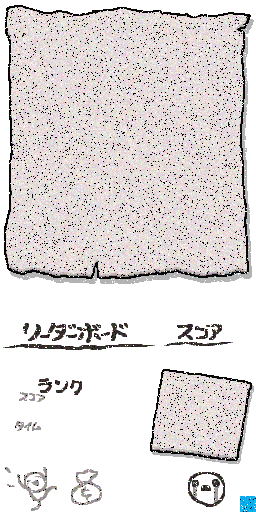 リーダーボード スコア
ランク
スコア
タイム